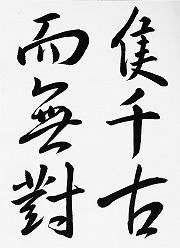 隻千古
而無對